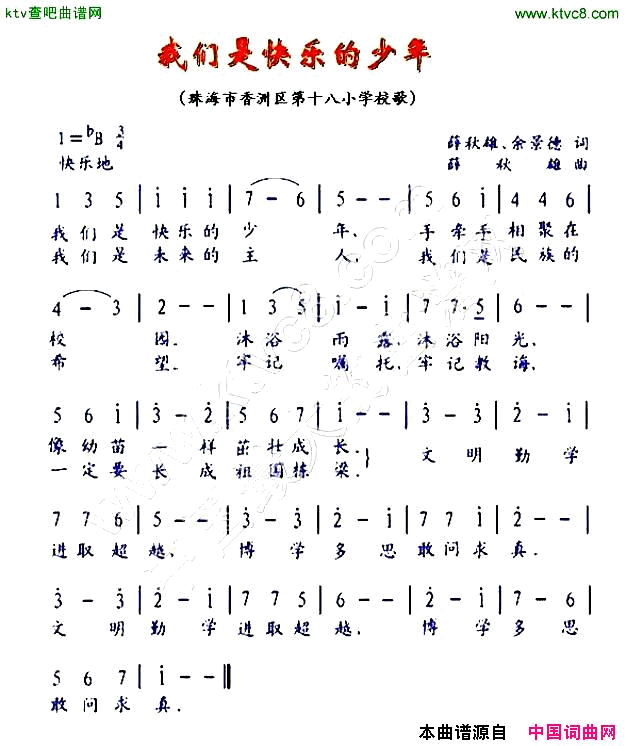 ktv查吧曲谱网 www.ktvc8.com
我们是快乐的少年
(珠海市香洲区第十八小学校歌)
1=ᵇB 3/4 薛秋雄、余景德 词
快乐地 薛秋雄 曲
1 3 5 | i i i | 7 - 6 | 5 - - | 5 6 i | 4 4 6 |
我们是 快乐的 少 年、 手牵手 相聚在
我们是 未来的 主 人、 我们是 民族的
4 - 3 | 2 - - | 1 3 5 | i - i | 7 7· 5 | 6 - - |
校 园。 沐浴 雨露、沐浴阳光、
希 望。 牢记 嘱托、牢记教诲、
5 6 i | 3̇ - 2̇ | 5 6 7 | i - - | 3̇ - 3̇ | 2̇ - i |
像幼苗 一 样 茁壮成长。 文 明 勤 学
一定要 长 成 祖国栋梁。
7 7 6 | 5 - - | 3̇ - 3̇ | 2̇ - i | 7 7 5 | i - - |
进取超越、 博 学 多 思 敢问求真。
3̇ - 3̇ | 2̇ - i | 7 7 5 | 6 - - | 2̇ - i | 7 - 6 |
文 明 勤 学 进取超越、 博 学 多 思
5 6 7 | i - - ‖
敢问求真。
本曲谱源自 中国词曲网